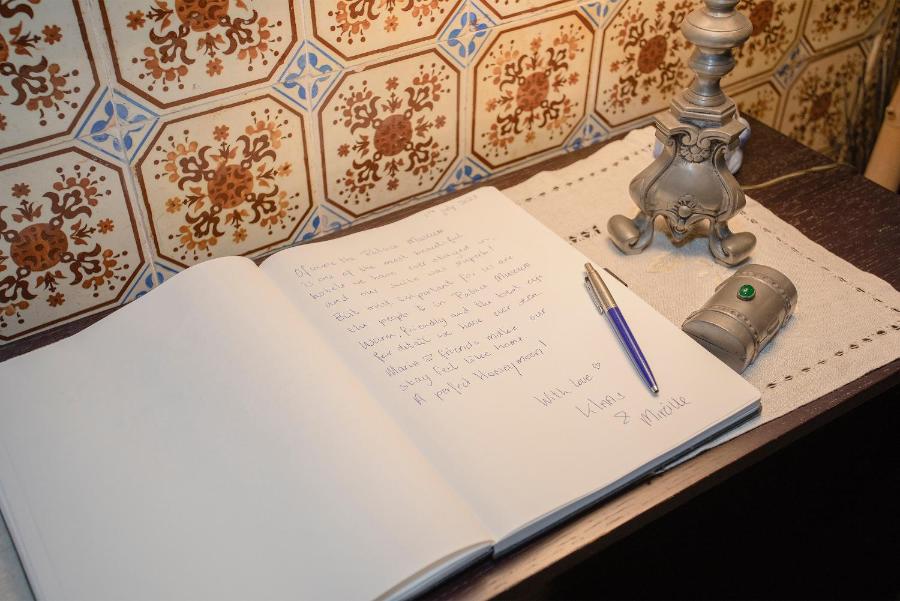 July
the Palace Museum
is one of the most beautiful
hotels we have ever stayed in
and our suite was superb!
But most important for us are
the people @ in Palace Museum
Warm, friendly and the best eye
for detail we have ever seen
Maria & friends make our
stay feel like home
A perfect Honeymoon!
With love ♡
Klaas
& Mireille